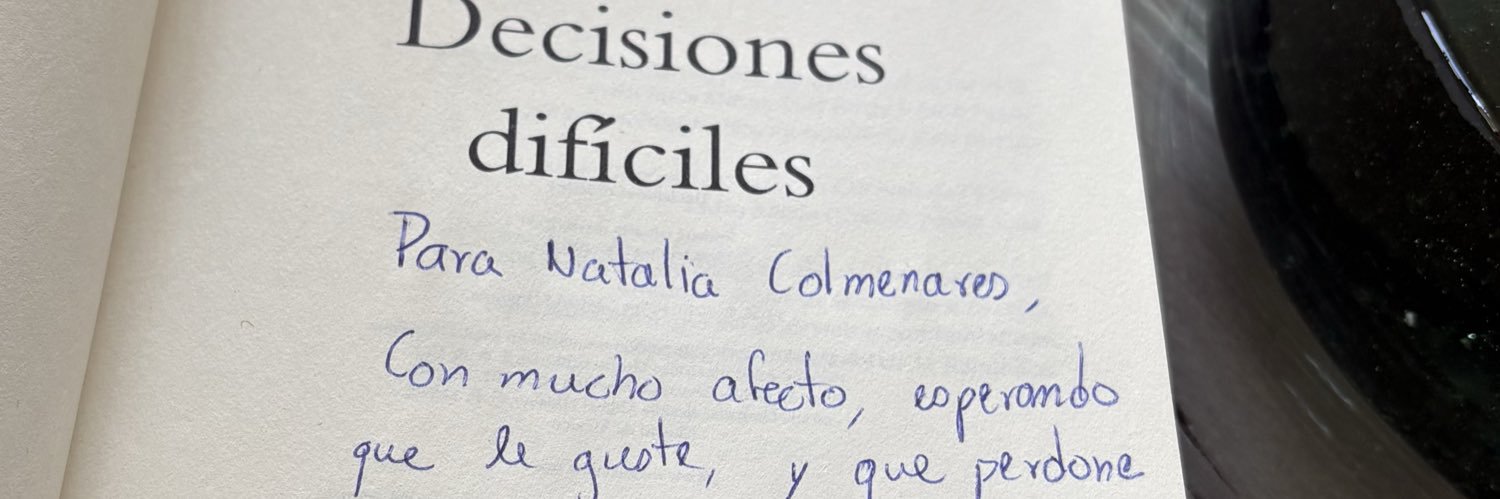 Decisiones
difíciles
Para Natalia Colmenares,
Con mucho afecto, esperando
que le guste, y que perdone